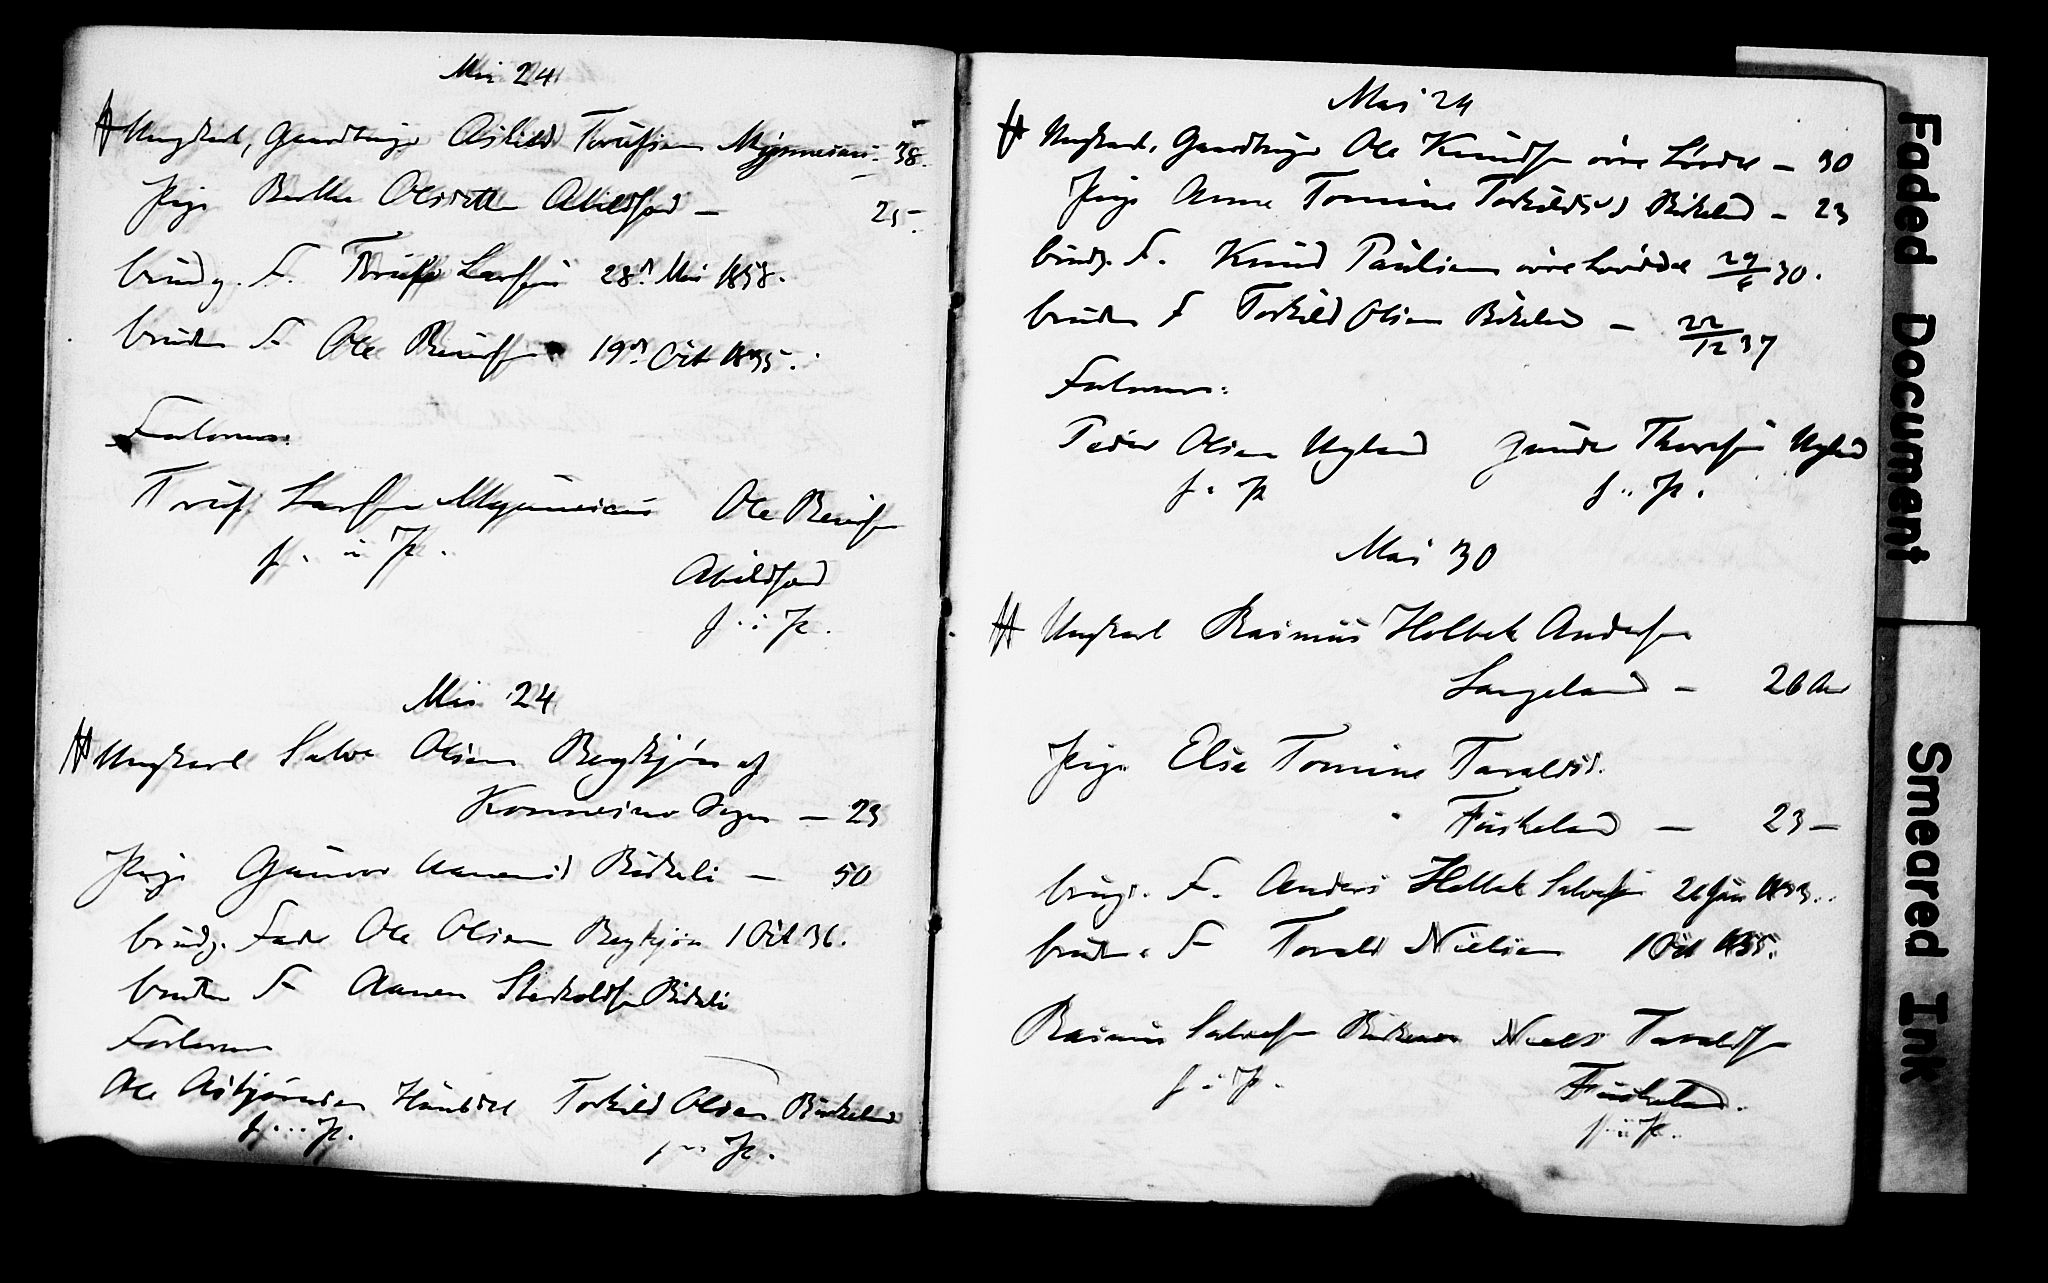 Mai 24
Ungkarl, Gaardbruger Aslild Torjussen Mjunesun 38.
Pige Berthe Olsdatter Abildsnd – 25.
brudg. F. Torjus Larsen 28de Mai 1858.
bruden F Ole Berntsen 19de Oct 1835.
Forlovere:
Torjus Larsen Ole Berntsen
f. i P. Abildsnd
f. i P.
Mai 24
Ungkarl Salve Olsen Bergkjøn af
Sogn – 23
Pige Gunvor Aanensd Birkeli – 50
brudg. Fader Ole Olsen Bergkjøn 1 Oct 36.
bruden F Aanen Birkeli
Forlovere
Ole Asbjørnsen Torkild Olsen Birkeland
f. i P. f. i P.
Mai 24
Ungkarl, Gaardbruger Ole Knudsen øvre – 30
Pige Anne Tomine Torkildsd Birkeland – 23
brudg. F. Knud Paulsen øvre 29/6 30.
bruden F Torkild Olsen Birkeland – 22/12 37
Forlovere:
Peder Olsen Ugland Gunder Thoresen Ugland
f. i P. f. i P.
Mai 30
Ungkarl Rasmus Holbek Andersen
Langeland – 26 Aar
Pige Elise Tomine Taraldsd.
Fuskeland – 23 –
brudg. F. Anders Holbek Salvesen 26 Jun 1833.
bruden F Tarald Nielsen 1 Oct 1835.
Rasmus Salvesen Niels Taraldsen
f. i P. Fuskeland.
f. i P.
Faded Document
Smeared Ink